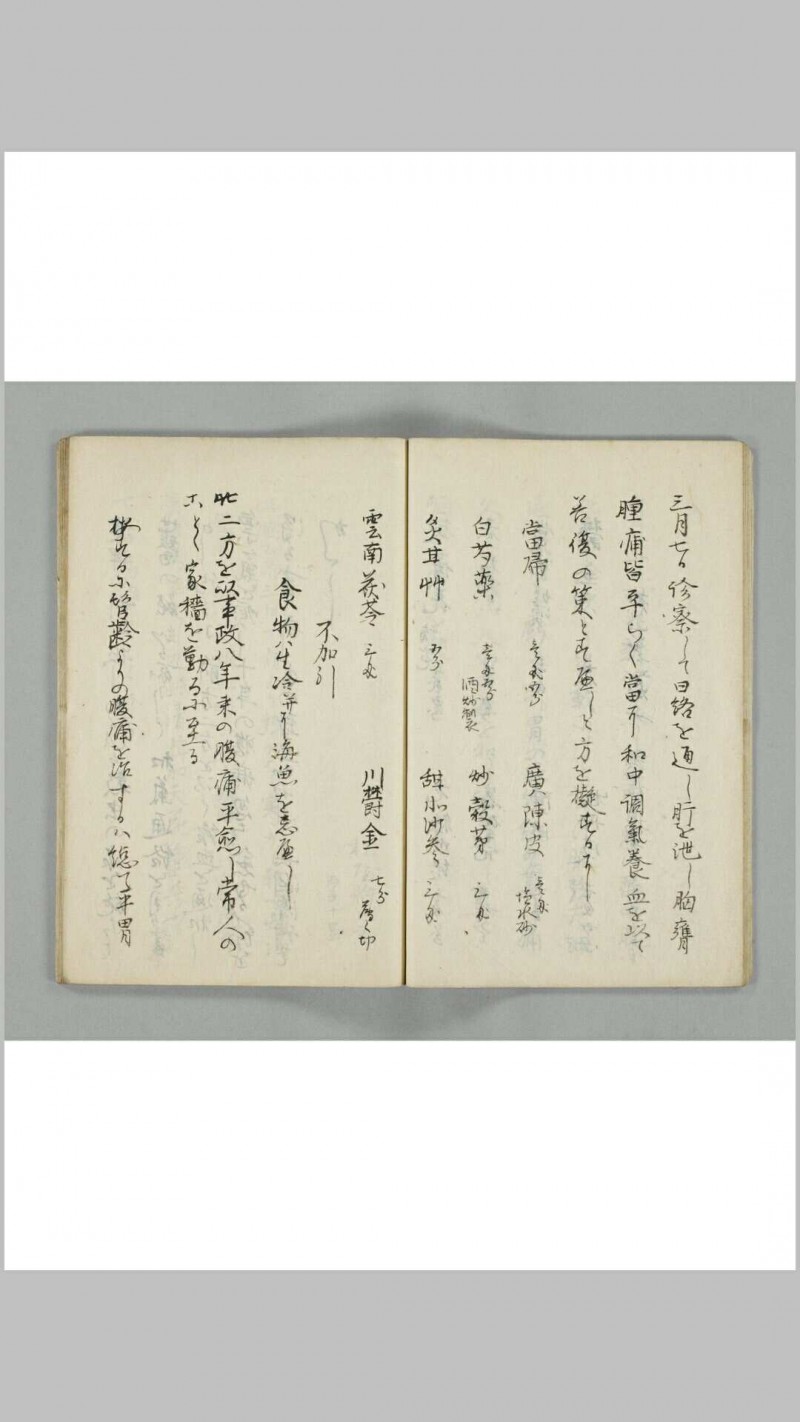 三月七日診察して曰絡を通し肝を泄し胸癰
腫痛皆平らく當に和中調氣養血を以て
善後の策とすへしと方を擬するに
當帰 廣陳皮 塩水炒
白芍薬 酒炒 炒穀芽 三戔
炙甘艸 五分 甜北沙参 三戔
雲南茯苓 三戔 川欝金 七分 切
不加引
食物ハ生冷并に海魚を忌へし
此二方を以 政八年来の腹痛平愈し常人の
ことく家穡を勤るに至る
するに髫齢よりの腹痛を治するハ